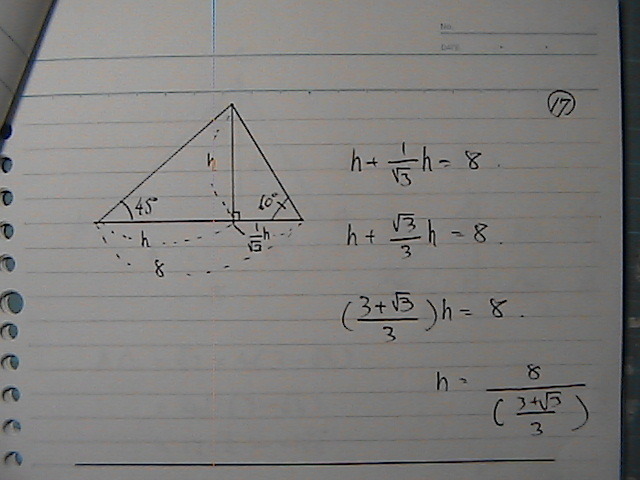 NO.
DATE
17
h
45°
60°
h
1/√3 h
8
h + 1/√3 h = 8.
h + √3/3 h = 8.
(3+√3/3)h = 8.
h = 8/(3+√3/3)